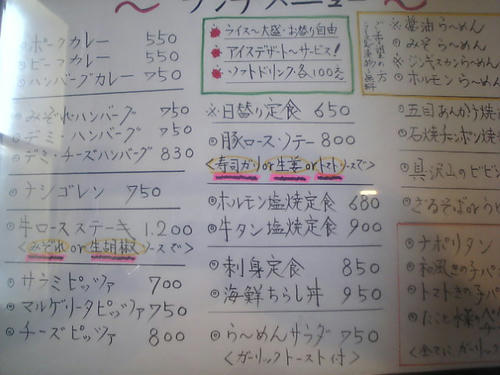 〜ランチメニュー〜
◎ポークカレー 550
◎ビーフカレー 550
◎ハンバーグカレー 750
◎みぞれハンバーグ 750
◎デミ・ハンバーグ 750
◎デミ・チーズハンバーグ 830
◎ナシゴレン 750
◎牛ロースステーキ 1.200
<みぞれor生胡椒ソースで>
◎サラミピッツァ 700
◎マルゲリータピッツァ 750
◎チーズピッツァ 800
ライス〜大盛・お替り自由
アイスデザート〜サービス!
ソフトドリンク・各100えん
※日替り定食 650
◎豚ロース・ソテー 800
<寿司ガリor生姜orトマトソースで>
◎ホルモン塩焼定食 680
◎牛タン塩焼定食 900
◎刺身定食 850
◎海鮮ちらし丼 950
◎ら〜めんサラダ 750
<ガーリックトースト付>
※醤油ら〜めん
◎みそら〜めん
※ジンギスカンら〜めん
◎ホルモンら〜めん
◎五目あんかけ焼
◎石焼チャンポン焼
◎具沢山のビビン
◎ざるそばorう
◎ナポリタン
◎和風きの子パ
◎トマトきの子パ